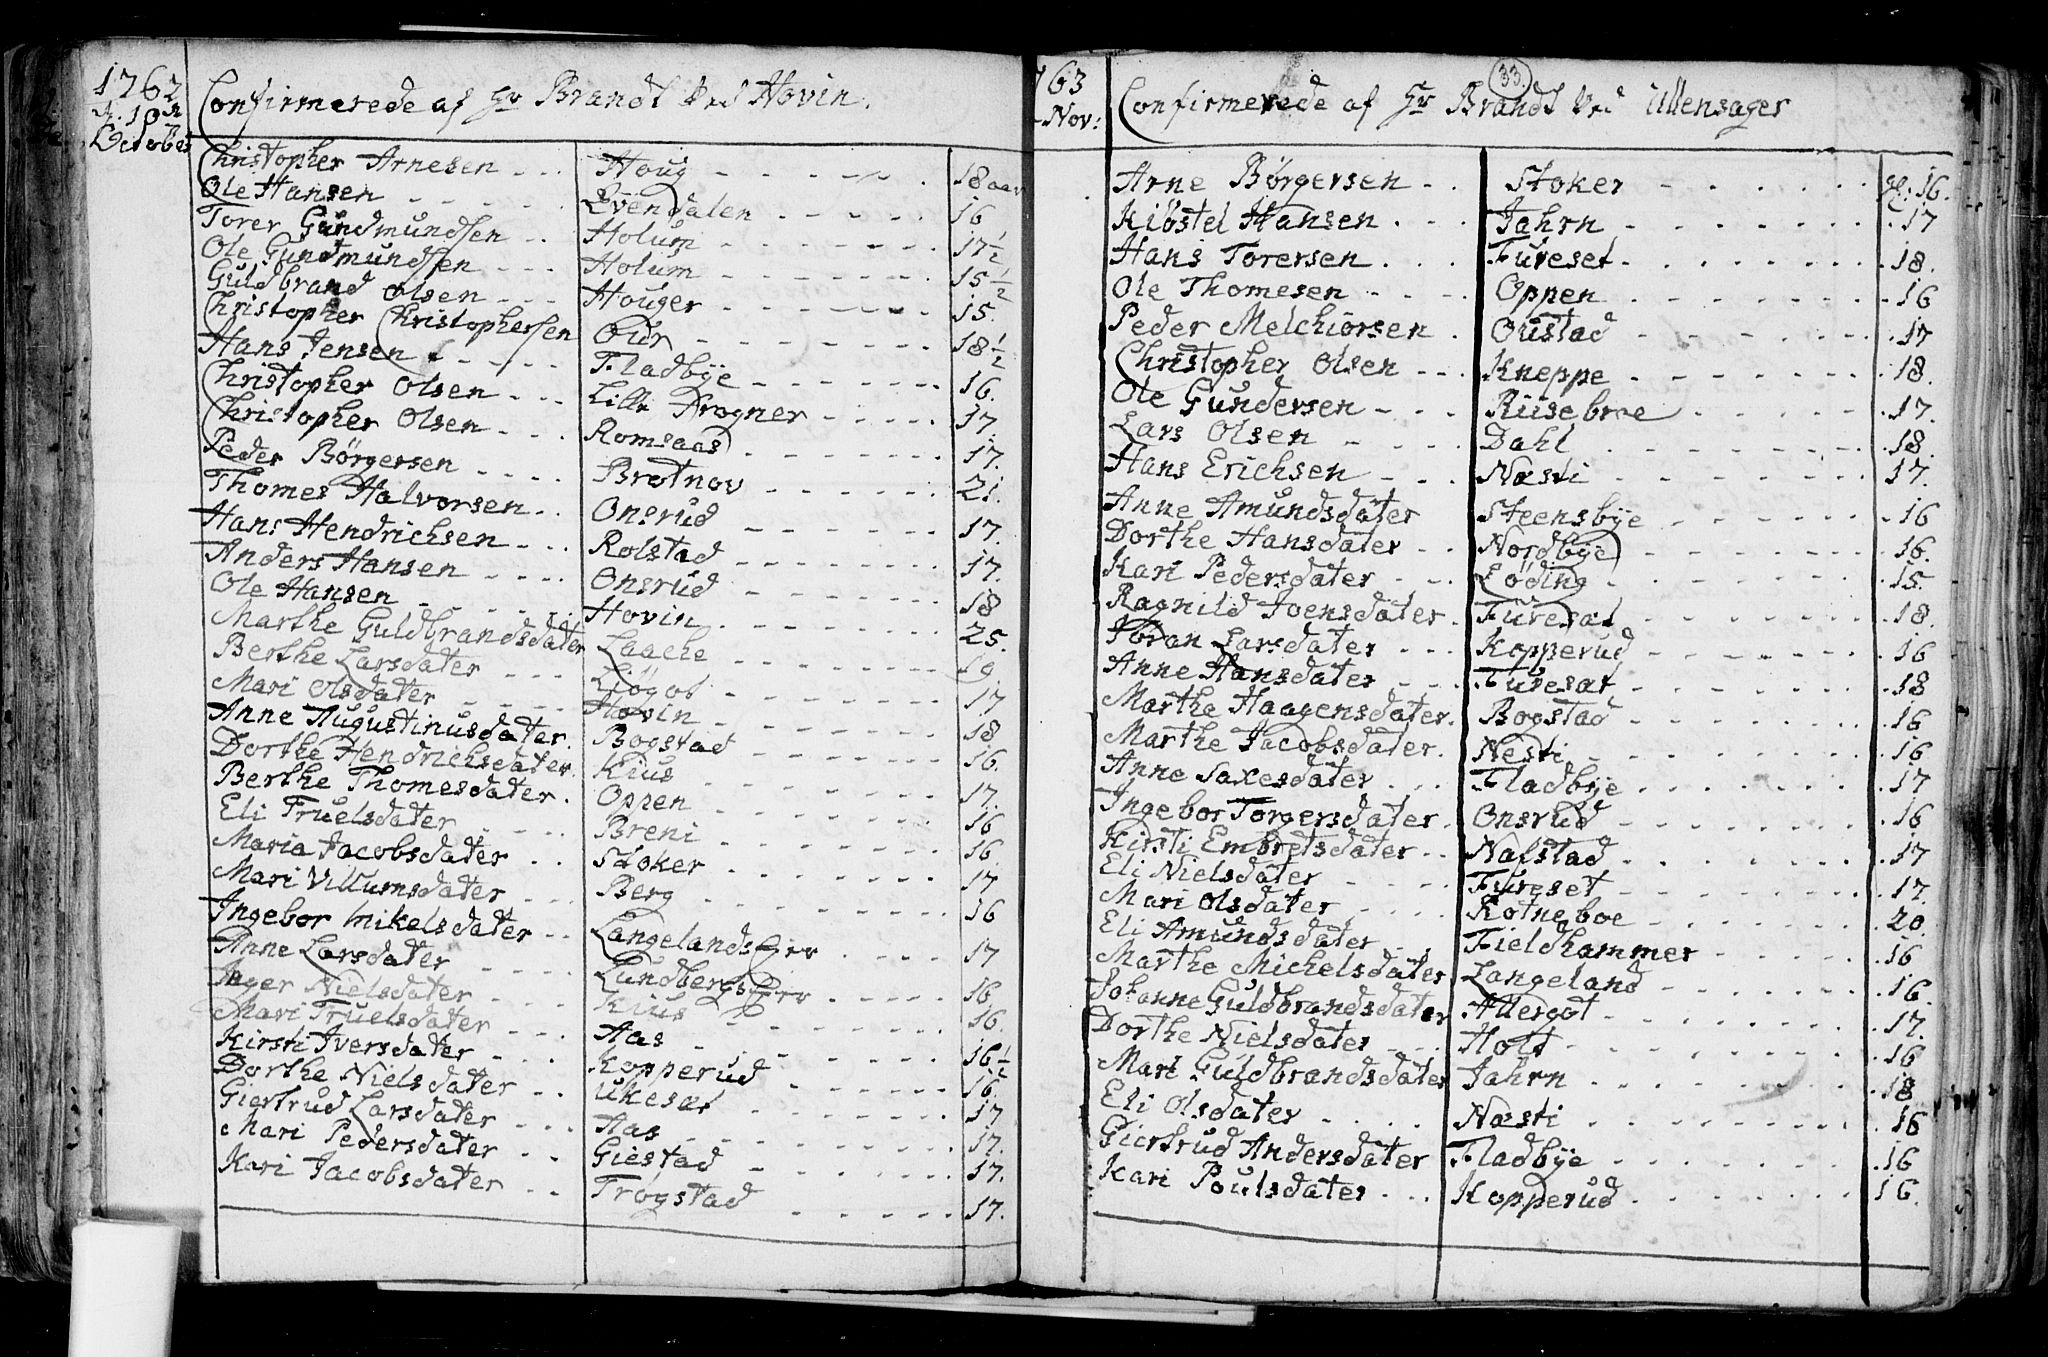 1762
d. 10de
October
Confirmerede af Hr Brandt ved Hovin.
Christopher Arnesen - - - Houg - - - - - 18 aar
Ole Hansen - - - - - Evendalen - - - - - 16
Torer Gundmundsen - - Holum - - - - - 17 1/2
Ole Gundmundsen - - - Holum - - - - - 15 1/2
Guldbrand Olsen - - - Houger - - - - - 15.
Christopher Christophersen Our - - - - - 18 1/2
Hans Jensen - - - - Fladbÿe - - - - - 16.
Christopher Olsen - - - Lille Drogner - - - - 17
Christopher Olsen - - - Romsaas - - - - - 17.
Peder Børgersen - - - - Brotnov - - - - - 21.
Thomes Halvorsen - - Onsrud - - - - - 17.
Hans Hendrichsen - - - Rolstad - - - - - 17.
Anders Hansen - - - - Onsrud - - - - - 18
Ole Hansen - - - - - Hovin - - - - - 25.
Marthe Guldbrandsdater Laache - - - - - 19
Berthe Larsdater - - - Liøgot - - - - - 17
Mari Olsdater - - - - Hovin - - - - - 18
Anne Augustinusdater. Bogstad - - - - - 16.
Dorthe Hendrichsdater. Kius - - - - - 17.
Berthe Thomesdater. Oppen - - - - - 16
Eli Truelsdater - - - - Breni - - - - - 16.
Maria Jacobsdater - - Stoker - - - - - 17
Mari Villumsdater - - - Berg - - - - - 16
Ingebor Mikelsdater - - Langelands - - - - 17
Anne Larsdater - - - - Lundbergs - - - - 16
Inger Nielsdater - - - Kius - - - - - 16.
Mari Truelsdater - - - Aas - - - - - 16 1/2
Kirsti Iversdater - - - Kopperud - - - - - 16.
Dorthe Nielsdater - - Ukesat - - - - - 17
Giertrud Larsdater - - - Aas - - - - - 17.
Mari Pedersdater - - Giestad - - - - - 17.
Kari Jacobsdater - - Trøgstad - - - - - 17.
33.
63
Nov:
Confirmerede af Hr Brandt ved Ullensager
Arne Børgersen - - Stoker - - - - - gl: 16.
Kiøstel Hansen - - - Jahrn - - - - - 17
Hans Torersen - - - Fureset - - - - - 18.
Ole Thomesen - - - Oppen - - - - - 16
Peder Melchiorsen - Oustad - - - - - 17
Christopher Olsen - - - Kneppe - - - - - 18.
Ole Gundersen - - - Riisebroe - - - - - 17.
Lars Olsen - - - - Dahl - - - - - 18.
Hans Erichsen - - - Næsti - - - - - 17.
Anne Amundsdater Steensbÿe - - - - - 16
Dorthe Hansdater - - Nordbÿe - - - - - 16.
Kari Pedersdater - - - Løding - - - - - 15.
Ragnild Joensdater - Furesat - - - - - 18.
Joran Larsdater - - - Kopperud - - - - - 16
Anne Hansdater - - - Furesat - - - - - 18
Marthe Haagensdater. Bogstad - - - - - 16
Marthe Jacobsdater. Nesti - - - - - 16
Anne Saxesdater - - - Fladbÿe - - - - - 17
Ingebor Torgersdater. Onsrud - - - - - 16
Kirsti Embretsdater - - Nafstad - - - - - 17
Eli Nielsdater - - - - Fureset - - - - - 17.
Mari Olsdater - - - - Kotneboe - - - - - 20.
Eli Amundsdater - - Fieldhammer - - - - - 16
Marthe Michelsdater Langeland - - - - - 16.
Johanne Guldbrandsdater Allergot - - - - - 17.
Dorthe Nielsdater - - - Holt - - - - - 16
Mari Guldbrandsdater Jahrn - - - - - 18
Eli Olsdater - - - - Næsti - - - - - 16
Giertrud Andersdater Fladbÿe - - - - - 16
Kari Poulsdater - - - Kopperud - - - - - 16.